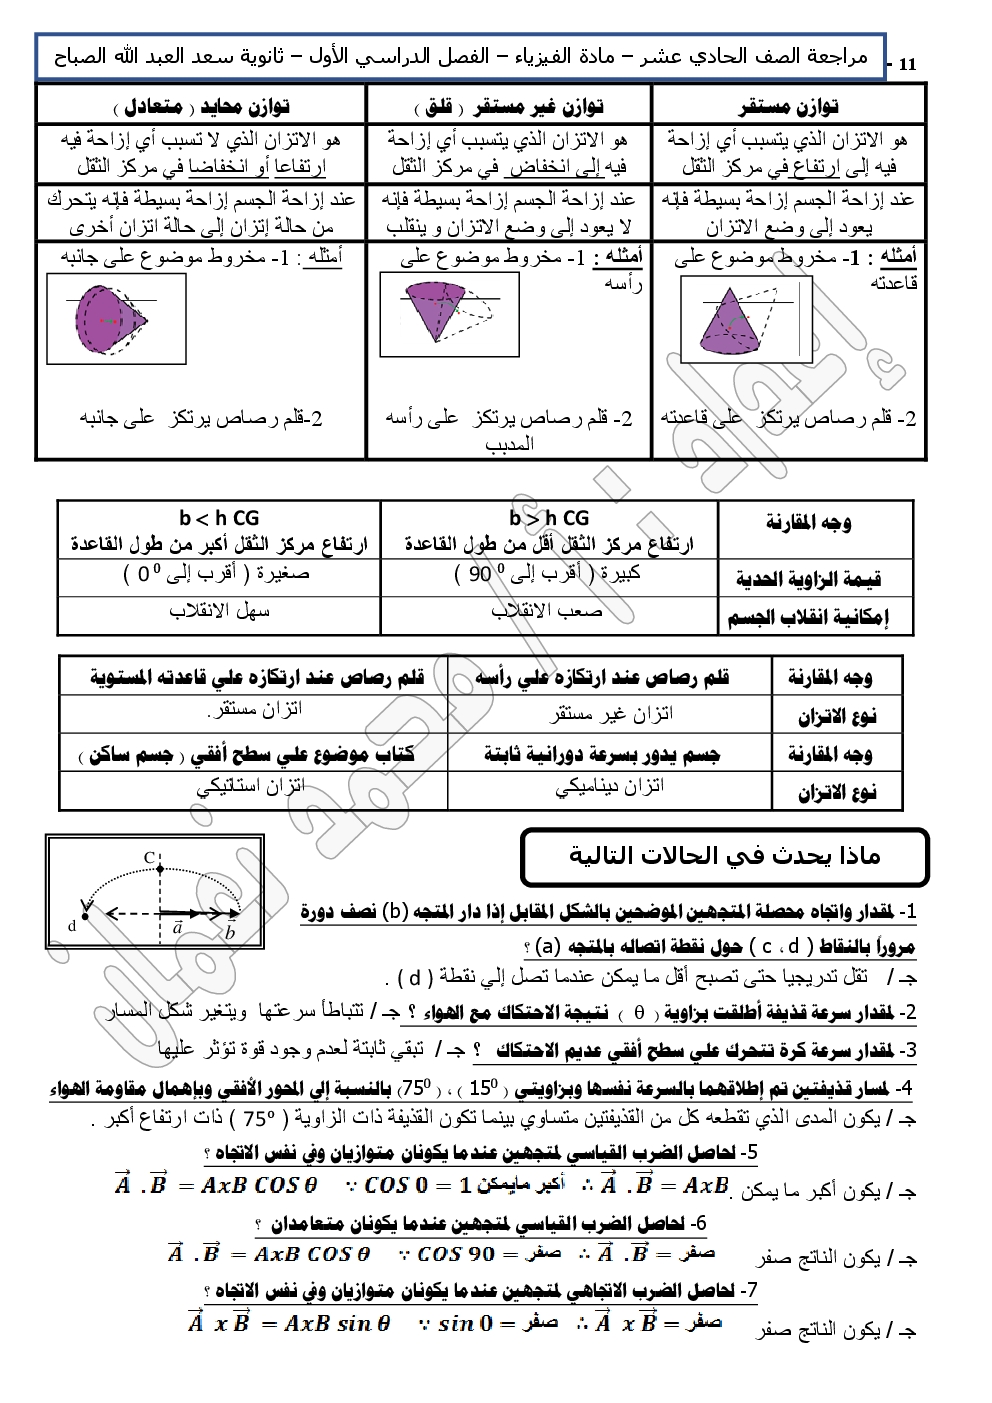 مراجعة الصف الحادي عشر – مادة الفيزياء – الفصل الدراسي الأول – ثانوية سعد العبد الله الصباح
- 11
توازن مستقر
توازن غير مستقر ( قلق )
توازن محايد ( متعادل )
هو الاتزان الذي يتسبب أي إزاحة
فيه إلى ارتفاع في مركز الثقل
هو الاتزان الذي يتسبب أي إزاحة
فيه إلى انخفاض في مركز الثقل
هو الاتزان الذي لا تسبب أي إزاحة فيه
ارتفاعا أو انخفاضا في مركز الثقل
عند إزاحة الجسم إزاحة بسيطة فإنه
يعود إلى وضع الاتزان
عند إزاحة الجسم إزاحة بسيطة فإنه
لا يعود إلى وضع الاتزان و ينقلب
عند إزاحة الجسم إزاحة بسيطة فإنه يتحرك
من حالة إتزان إلى حالة اتزان أخرى
أمثله : 1- مخروط موضوع على
قاعدته
2- قلم رصاص يرتكز على قاعدته
أمثله : 1- مخروط موضوع على
رأسه
2- قلم رصاص يرتكز على رأسه
المدبب
أمثله : 1- مخروط موضوع على جانبه
2-قلم رصاص يرتكز على جانبه
وجه المقارنة
b > h CG
ارتفاع مركز الثقل أقل من طول القاعدة
b < h CG
ارتفاع مركز الثقل أكبر من طول القاعدة
قيمة الزاوية الحدية
كبيرة ( أقرب إلى 90⁰ )
صغيرة ( أقرب إلى 0⁰ )
إمكانية انقلاب الجسم
صعب الانقلاب
سهل الانقلاب
وجه المقارنة
قلم رصاص عند ارتكازه علي رأسه
قلم رصاص عند ارتكازه علي قاعدته المستوية
نوع الاتزان
اتزان غير مستقر
اتزان مستقر.
وجه المقارنة
جسم يدور بسرعة دورانية ثابتة
كتاب موضوع علي سطح أفقي ( جسم ساكن )
نوع الاتزان
اتزان ديناميكي
اتزان استاتيكي
ماذا يحدث في الحالات التالية
C
d
a
b
1- لمقدار واتجاه محصلة المتجهين الموضحين بالشكل المقابل إذا دار المتجه (b) نصف دورة
مروراً بالنقاط ( c ، d ) حول نقطة اتصاله بالمتجه (a) ؟
جـ / تقل تدريجيا حتى تصبح أقل ما يمكن عندما تصل إلي نقطة ( d ) .
2- لمقدار سرعة قذيفة أطلقت بزاوية ( θ ) نتيجة الاحتكاك مع الهواء ؟ جـ / تتباطأ سرعتها ويتغير شكل المسار
3- لمقدار سرعة كرة تتحرك علي سطح أفقي عديم الاحتكاك ؟ جـ / تبقي ثابتة لعدم وجود قوة تؤثر عليها
4- لمسار قذيفتين تم إطلاقهما بالسرعة نفسها وبزاويتي ( 15⁰ ) ، ( 75⁰) بالنسبة إلي المحور الأفقي وبإهمال مقاومة الهواء
جـ / يكون المدى الذي تقطعه كل من القذيفتين متساوي بينما تكون القذيفة ذات الزاوية ( 75º ) ذات ارتفاع أكبر .
5- لحاصل الضرب القياسي لمتجهين عندما يكونان متوازيان وفي نفس الاتجاه ؟
جـ / يكون أكبر ما يمكن . A⃗ . B⃗ = AxB COS θ ∵ COS 0 = 1 أكبر مايمكن ∴ A⃗ . B⃗ = AxB
6- لحاصل الضرب القياسي لمتجهين عندما يكونان متعامدان ؟
جـ / يكون الناتج صفر A⃗ . B⃗ = AxB COS θ ∵ COS 90 = صفر ∴ A⃗ . B⃗ = صفر
7- لحاصل الضرب الاتجاهي لمتجهين عندما يكونان متوازيان وفي نفس الاتجاه ؟
جـ / يكون الناتج صفر A⃗ x B⃗ = AxB sin θ ∵ sin 0 = صفر ∴ A⃗ x B⃗ = صفر